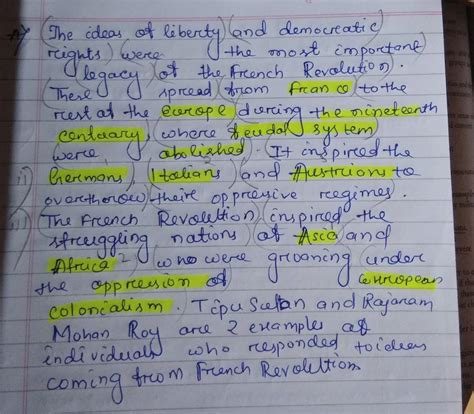 The ideas of liberty and democreatic
reights were the most important
legacy of the French Revolution.
These spread from France to the
rest of the europe dureing the nineteenth
centuary, where feudal system
were abolished. It inspired the
Germans, Italians and Austrians to
overthorow their oppresive regimes.
The French Revolution inspired the
struggling nations of Asia and
Africa who were groaning under
the oppression of european
colonialism. Tipu Sultan and Rajaram
Mohan Roy are 2 examples of
individuals who responded to ideas
coming from French Revolution